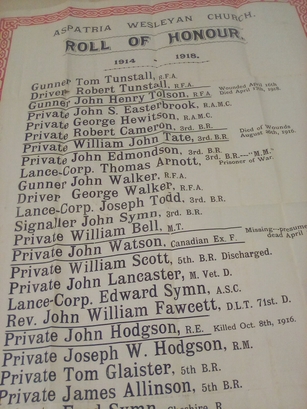 ASPATRIA WESLEYAN CHURCH.
ROLL OF HONOUR.
1914 - 1918.
Gunner Tom Tunstall, R.F.A.
Driver Robert Tunstall, R.F.A.
Gunner John Henry Tolson, R.F.A. Wounded April Died April 17th, 1918.
Private John S. Easterbrook, R.A.M.C.
Private George Hewitson, R.A.M.C.
Private Robert Cameron, 3rd. B.R.
Private William John Tate, 3rd. B.R. Died of Wounds August
Private John Edmondson, 3rd. B.R.
Lance-Corp. Thomas Arnott, 3rd. B.R.—"M.M." Prisoner of War.
Gunner John Walker, R.F.A.
Driver George Walker, R.F.A.
Lance-Corp. Joseph Todd, 3rd. B.R.
Signaller John Symn, 3rd. B.R.
Private William Bell, M.T.
Private John Watson, Canadian Ex. F. Missing—presumed dead April
Private William Scott, 5th. B.R. Discharged.
Private John Lancaster, M. Vet. D.
Lance-Corp. Edward Symn, A.S.C.
Rev. John William Fawcett, D.L.T. 71st. D.
Private John Hodgson, R.E. Killed Oct. 8th, 1916.
Private Joseph W. Hodgson, R.M.
Private Tom Glaister, 5th B.R.
Private James Allinson, 5th B.R.
Symn